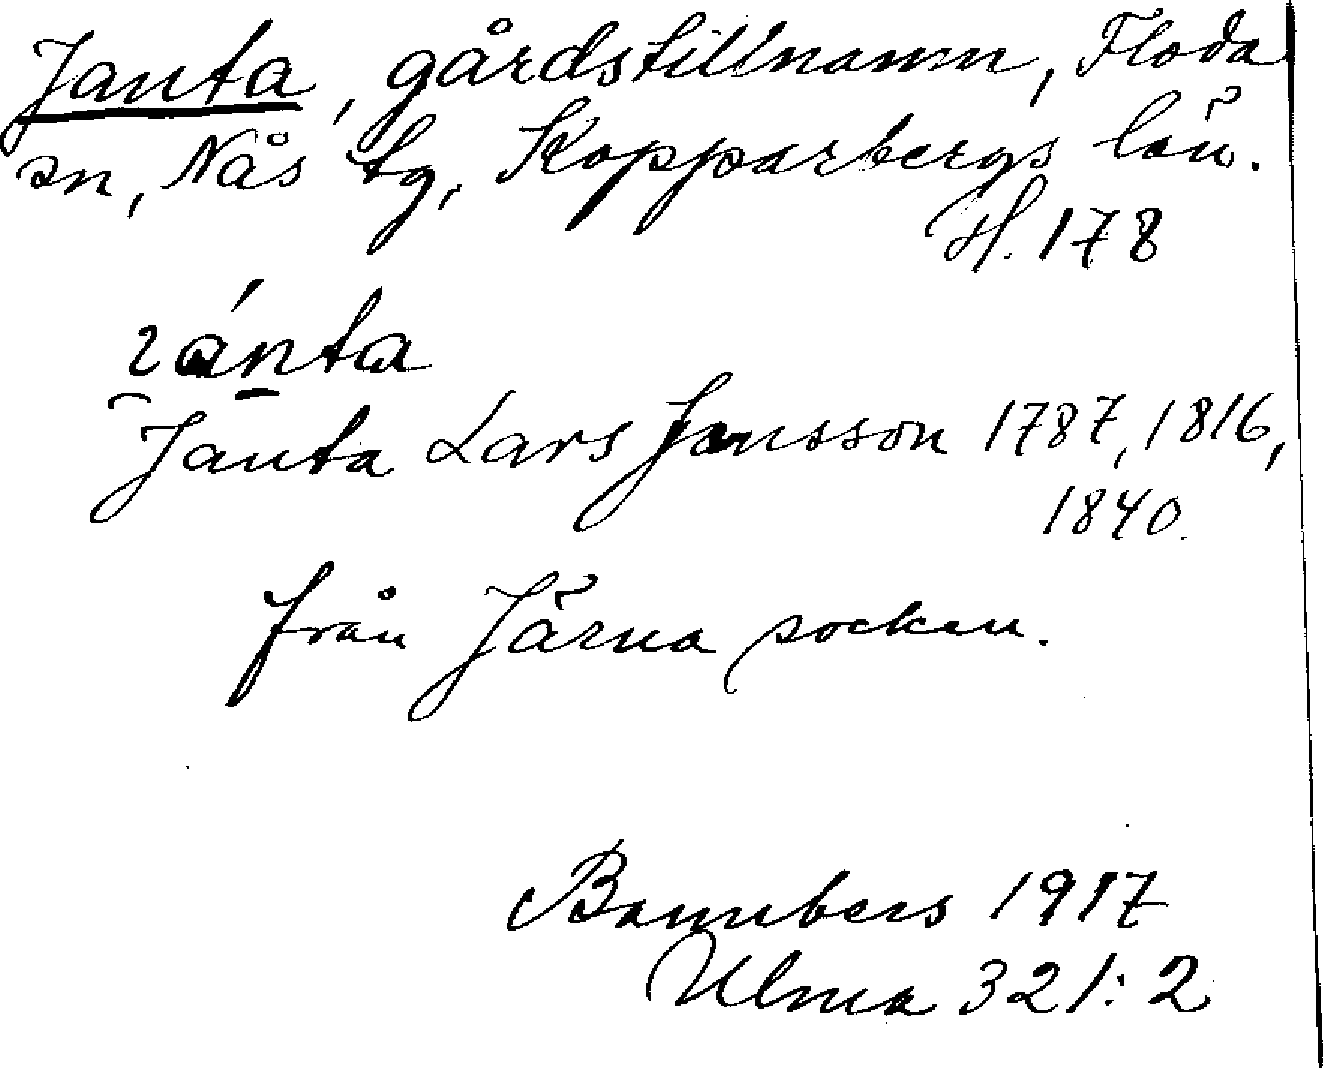 Janta, gårdstillnamn, Floda
sn, Nås tg, Kopparbergs län.
H. 178
ɩánta
Janta Lars Jansson 1787, 1816,
1840.
från Järna socken.
Bannbers 1917
Ulma 321:2